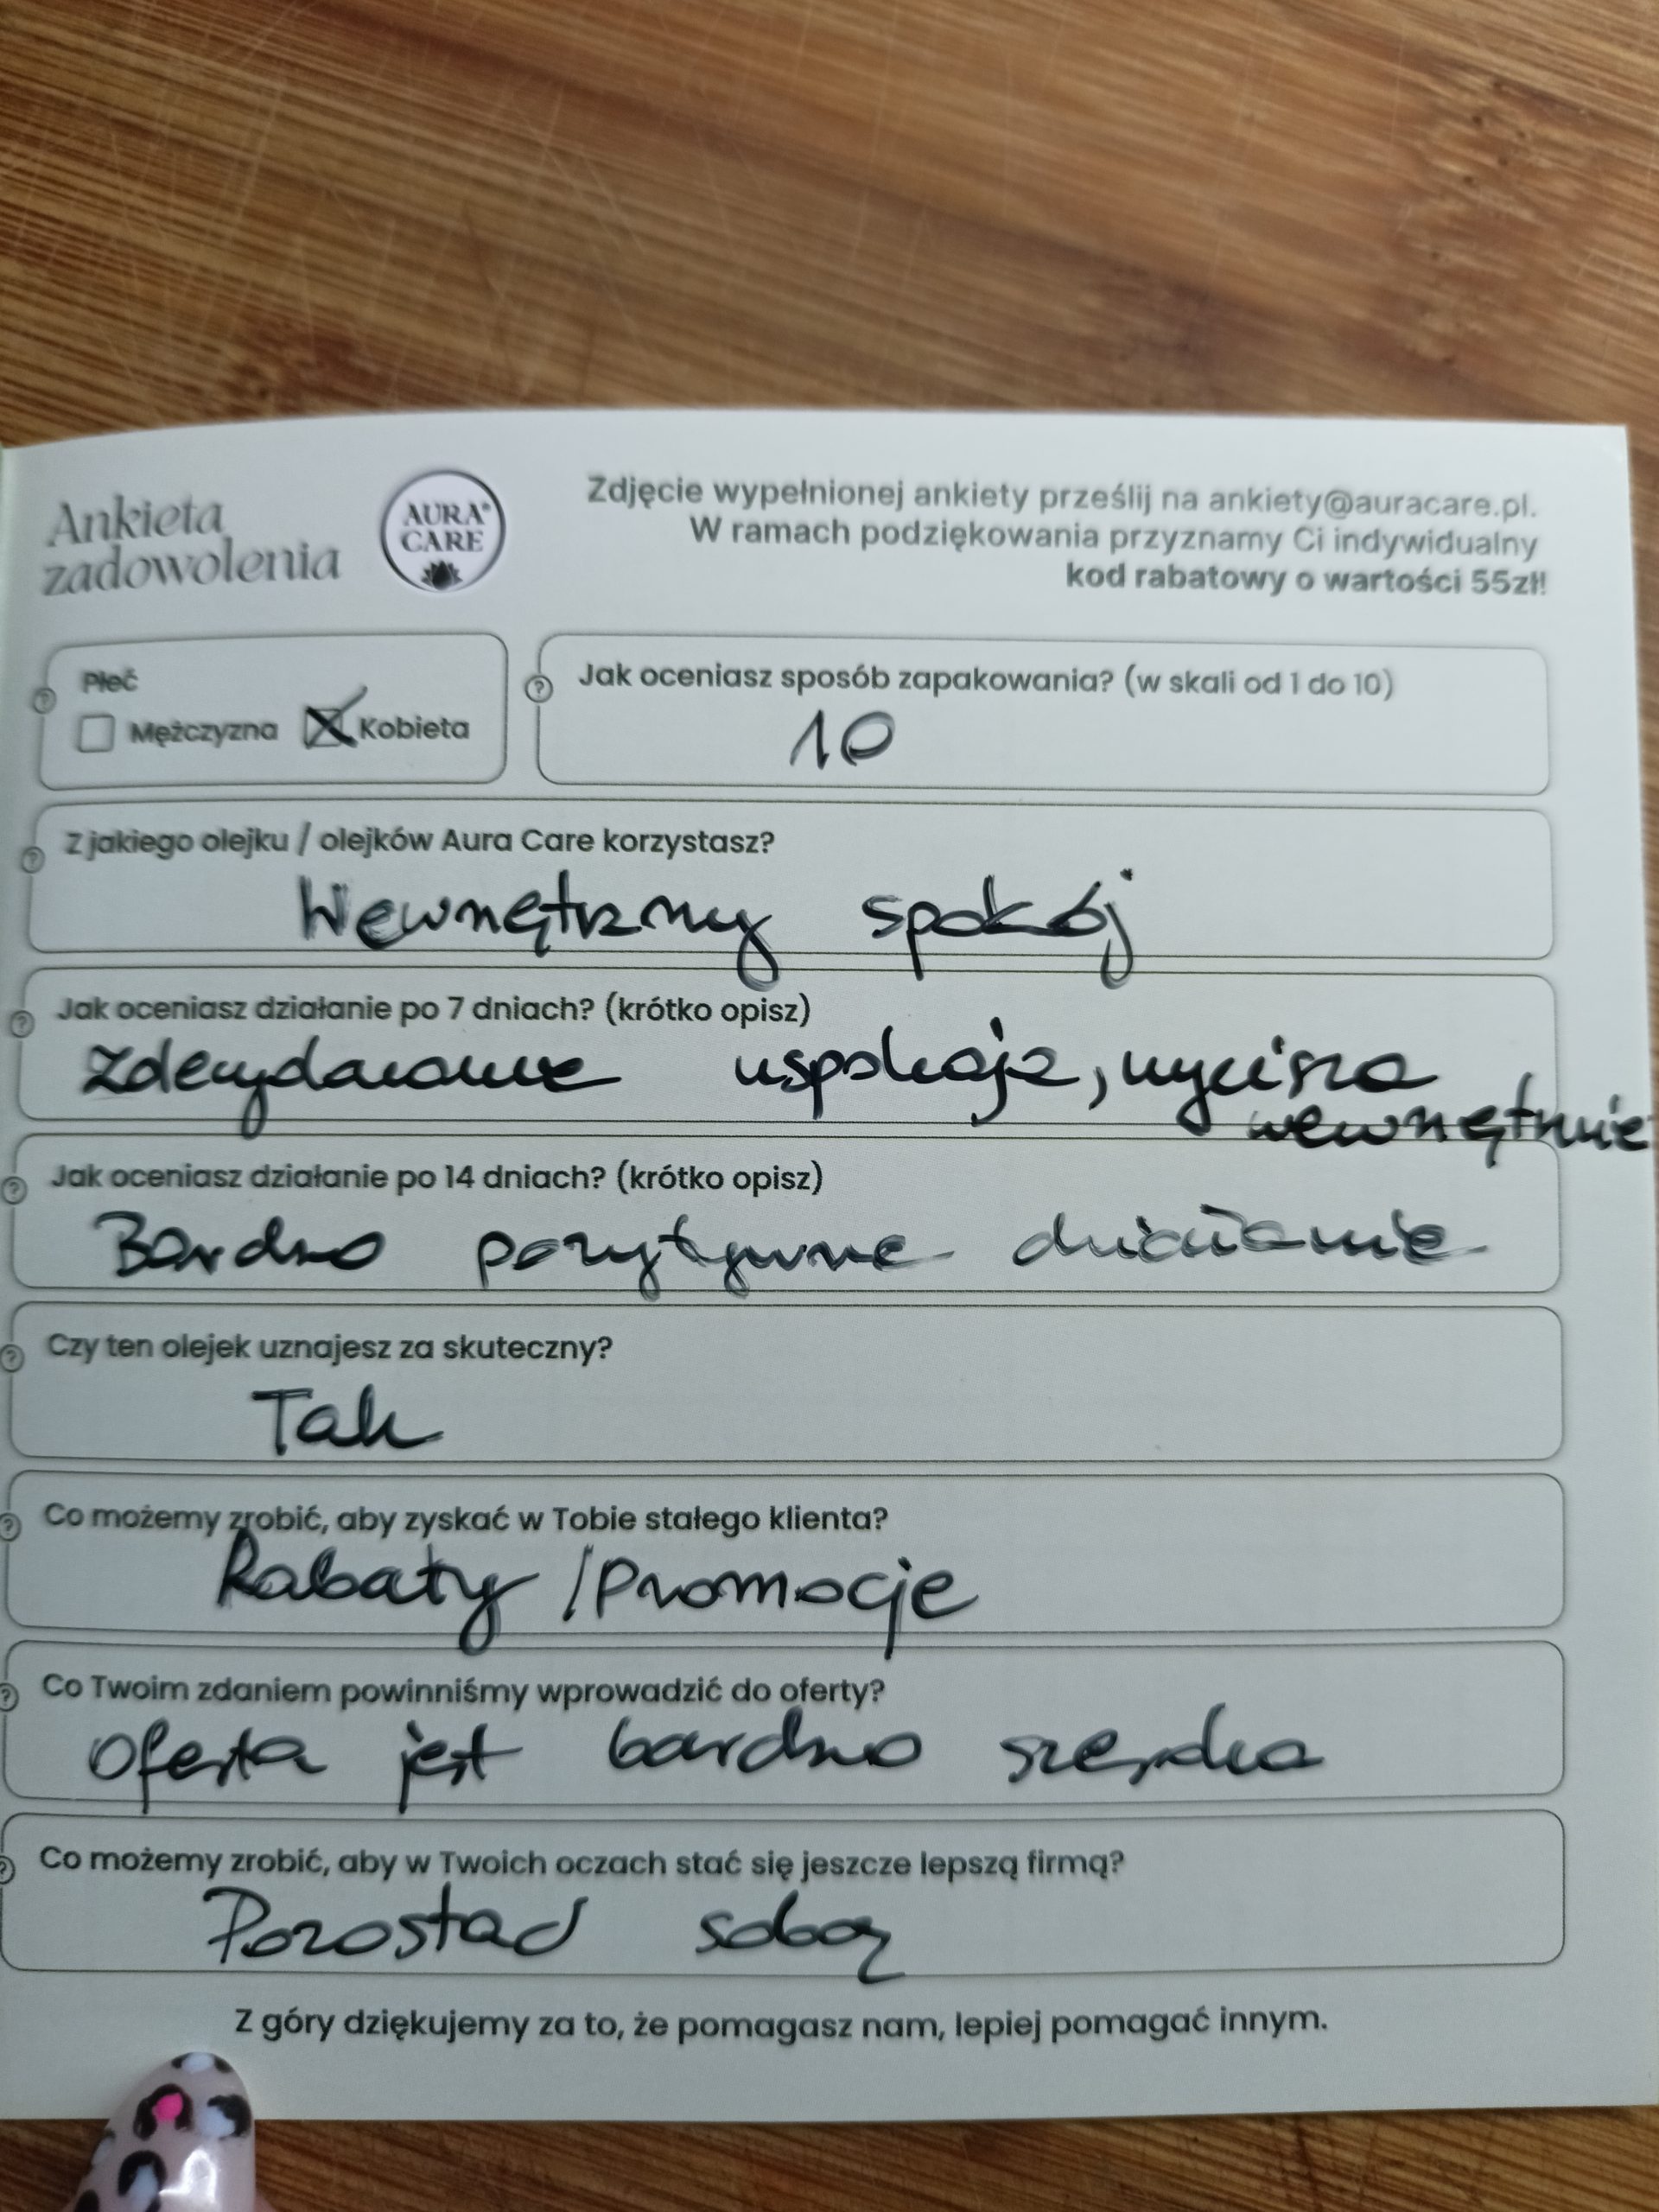 Ankieta
zadowolenia
AURA®
CARE
Zdjęcie wypełnionej ankiety prześlij na ankiety@auracare.pl.
W ramach podziękowania przyznamy Ci indywidualny
kod rabatowy o wartości 55zł!
Płeć
Mężczyzna Kobieta
Jak oceniasz sposób zapakowania? (w skali od 1 do 10)
10
Z jakiego olejku / olejków Aura Care korzystasz?
Wewnętrzny spokój
Jak oceniasz działanie po 7 dniach? (krótko opisz)
Zdecydowanie uspokaja, wycisza
wewnętrznie
Jak oceniasz działanie po 14 dniach? (krótko opisz)
Bardzo pozytywne działanie
Czy ten olejek uznajesz za skuteczny?
Tak
Co możemy zrobić, aby zyskać w Tobie stałego klienta?
Rabaty / Promocje
Co Twoim zdaniem powinniśmy wprowadzić do oferty?
Oferta jest bardzo szeroka
Co możemy zrobić, aby w Twoich oczach stać się jeszcze lepszą firmą?
Pozostać sobą
Z góry dziękujemy za to, że pomagasz nam, lepiej pomagać innym.